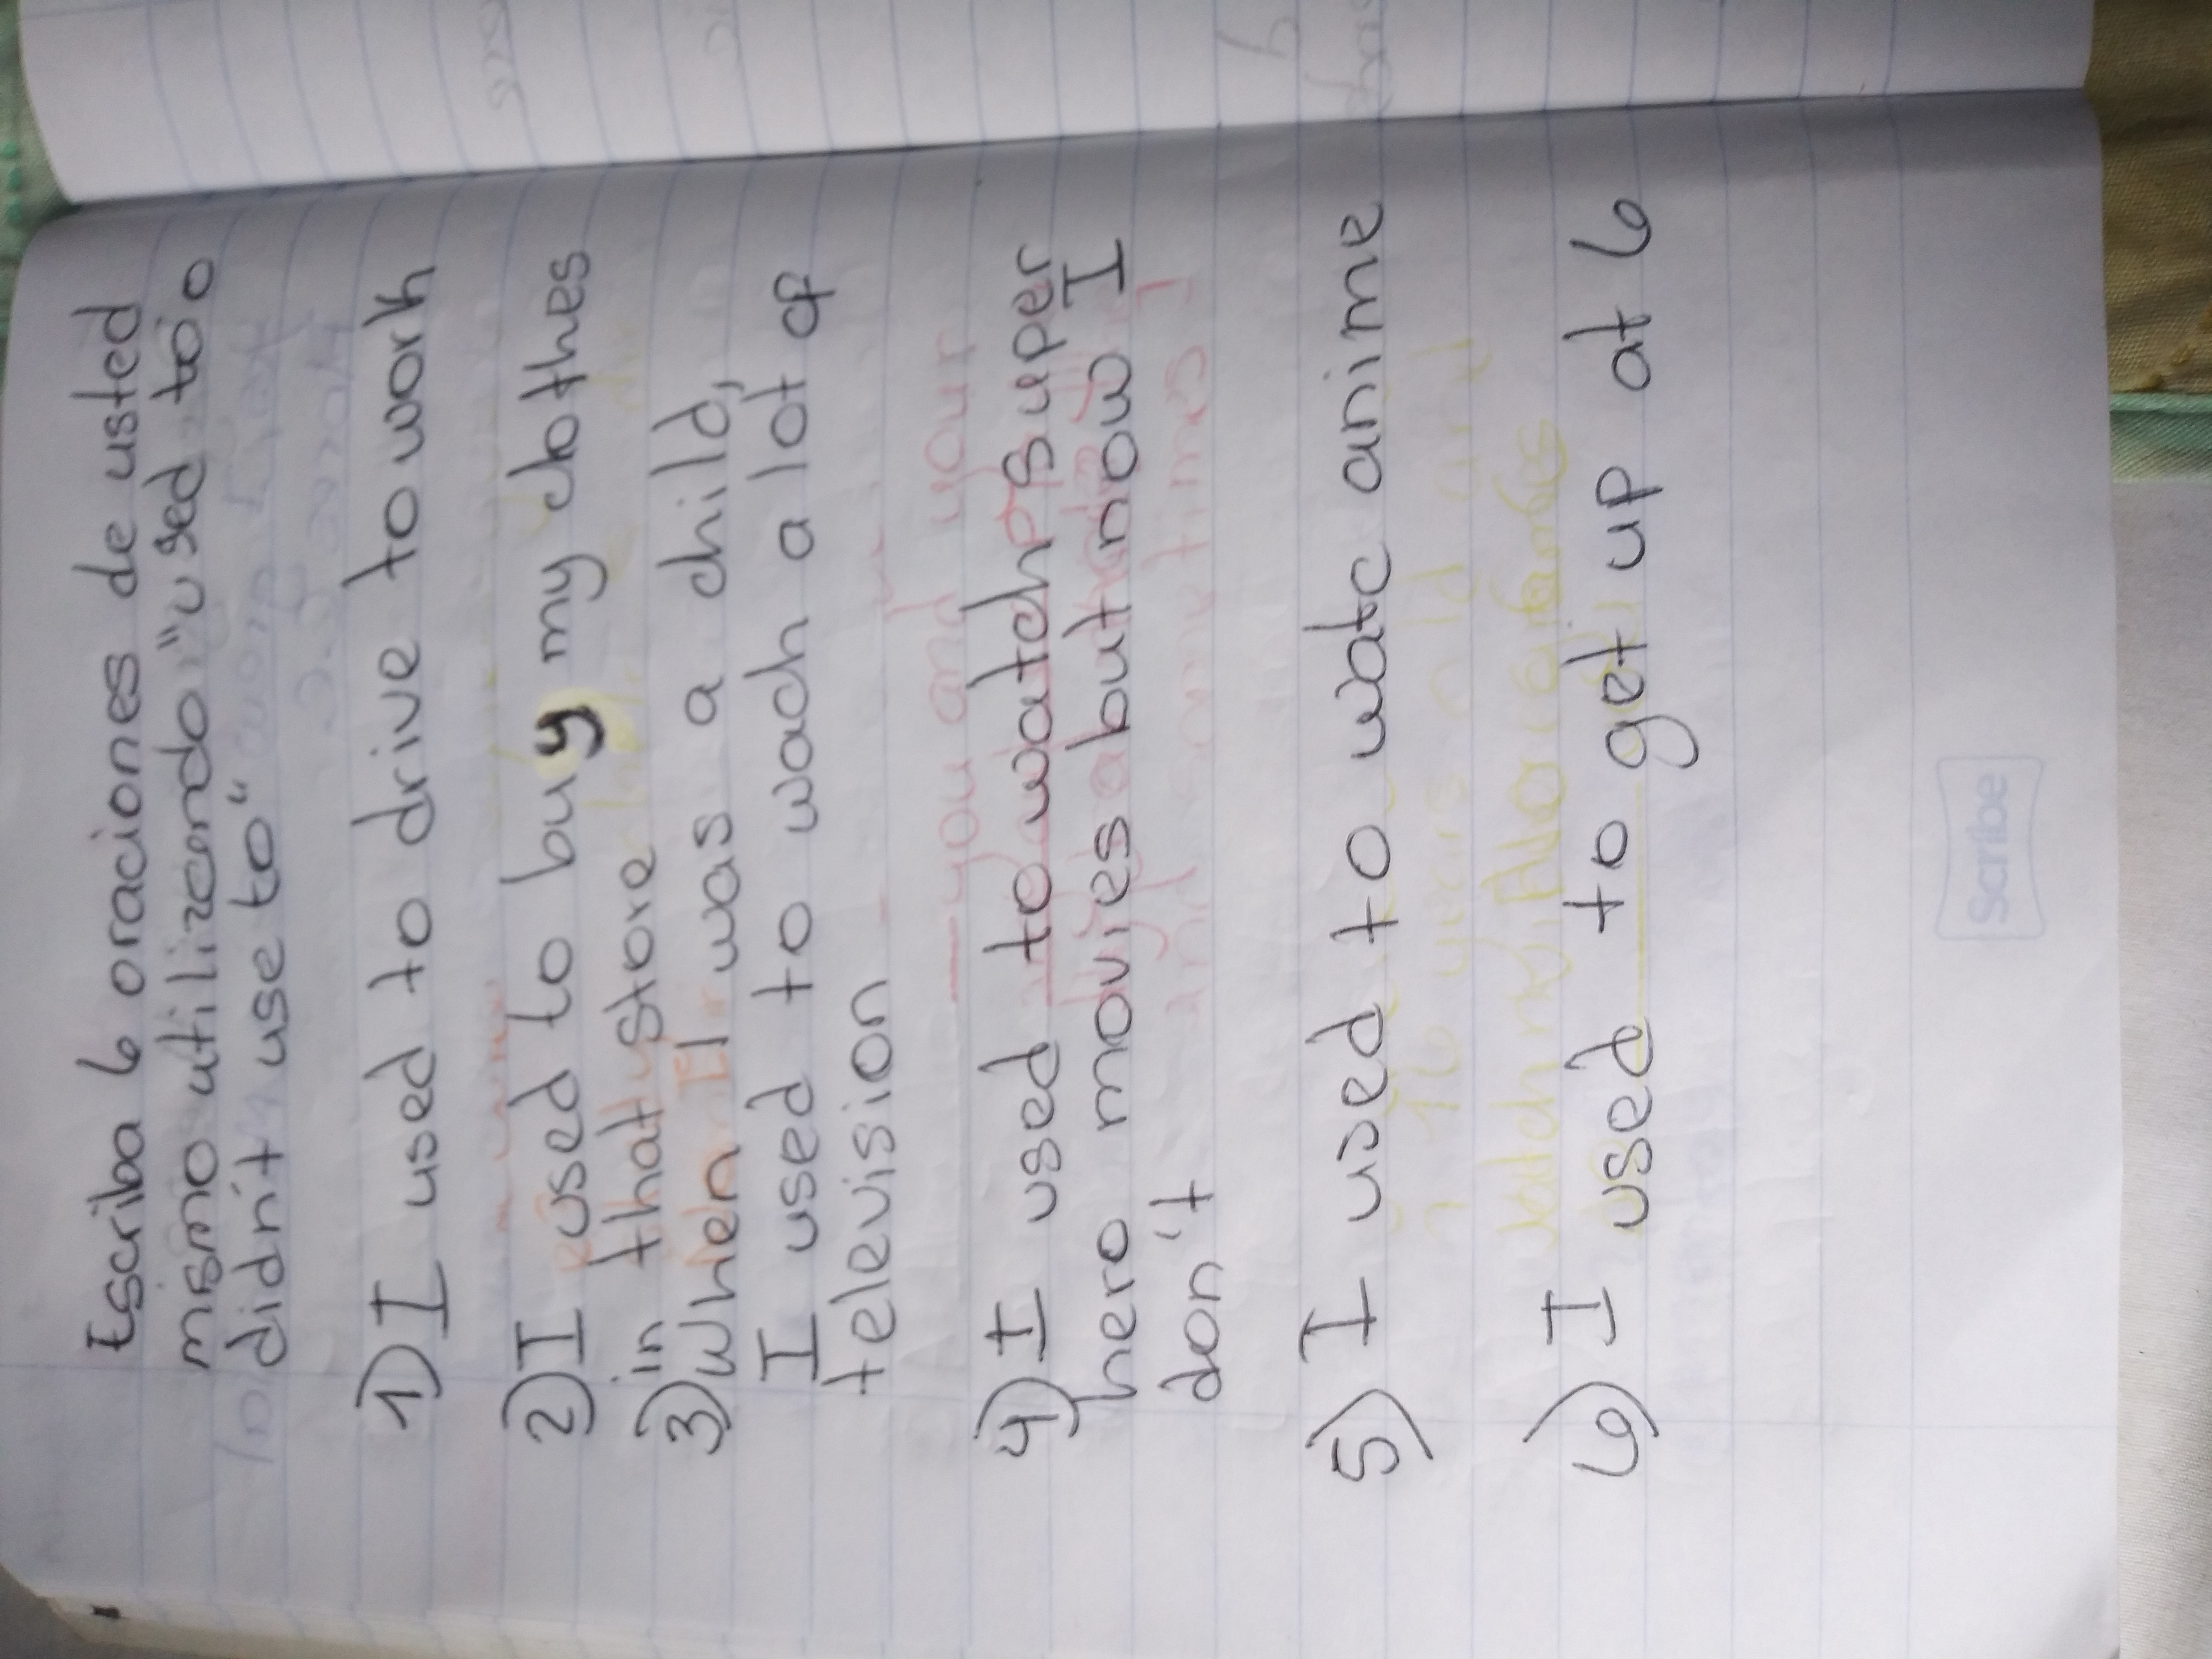 Escriba 6 oraciones de usted
mismo utilizando "used to o
didn't use to"
1) I used to drive to work
2) I used to buy my clothes
in that store
3) When I was a child,
I used to wach a lot of
television
4) I used to watch super
hero movies but now I
don't
5) I used to watc anime
6) I used to get up at 6
Scribe